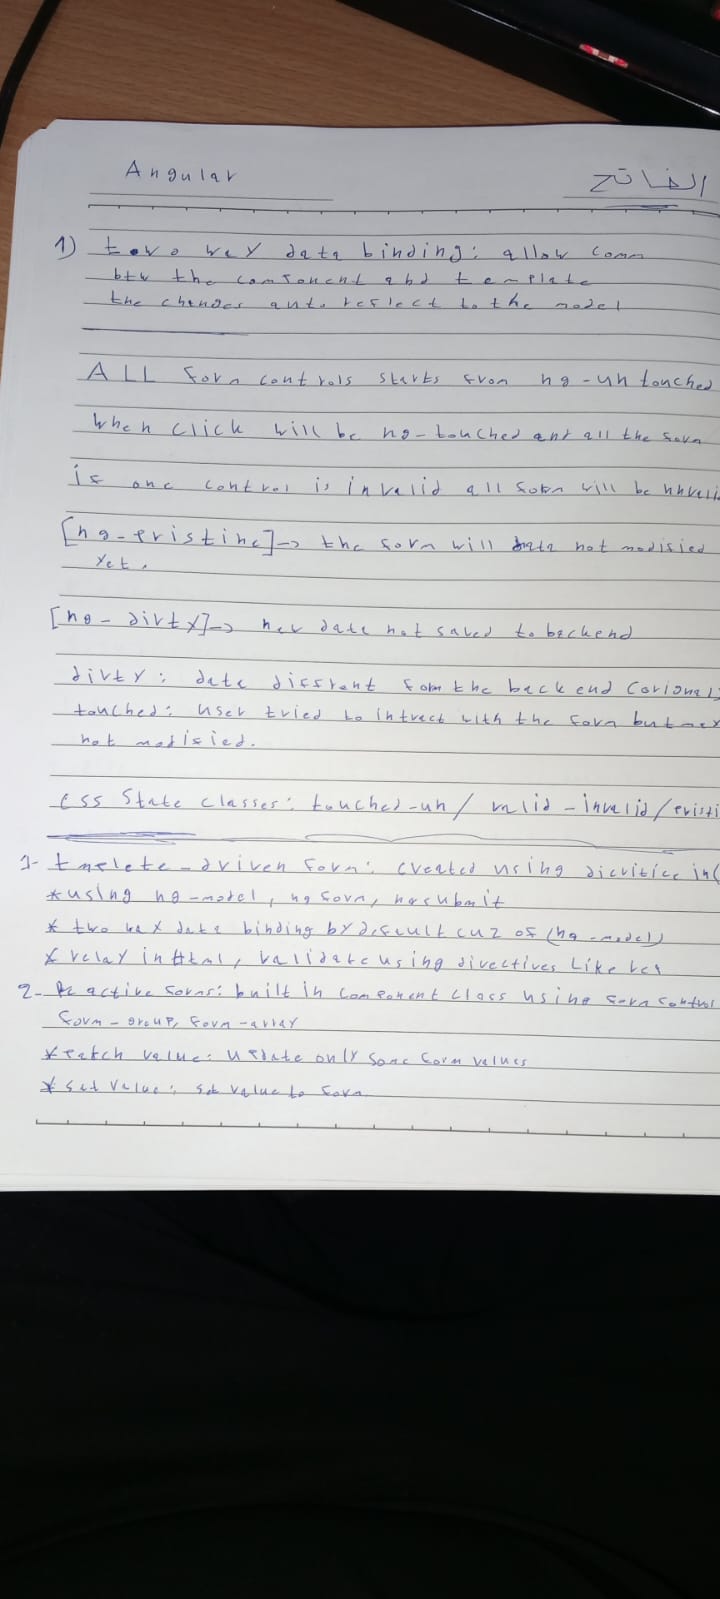 Angular
الفاتح
1) towo way data binding: allow comm
btw the component and template
the changes auto reflect to the model
ALL form controls starts from ng-untouched
when click will be ng-touched and all the form
if one control is invalid all form will be
[ng-pristine]-> the form will data not modified
yet.
[ng-dirty]-> new data not saved to backend
dirty: data diffrent form the back end
touched: User tried to intract with the form but
not modified.
css state classes: touched-un/ valid-invalid/pristi
1- tmplete-driven form: created using in(
* using ng-model, ng form, ngsubmit
* two way data binding by default cuz of (ng-model)
* relay in Html, validate using directives Like
2- Reactive forms: built in component class using form control
form-group, form-array
* patch value: update only some form values
* set value: set value to form